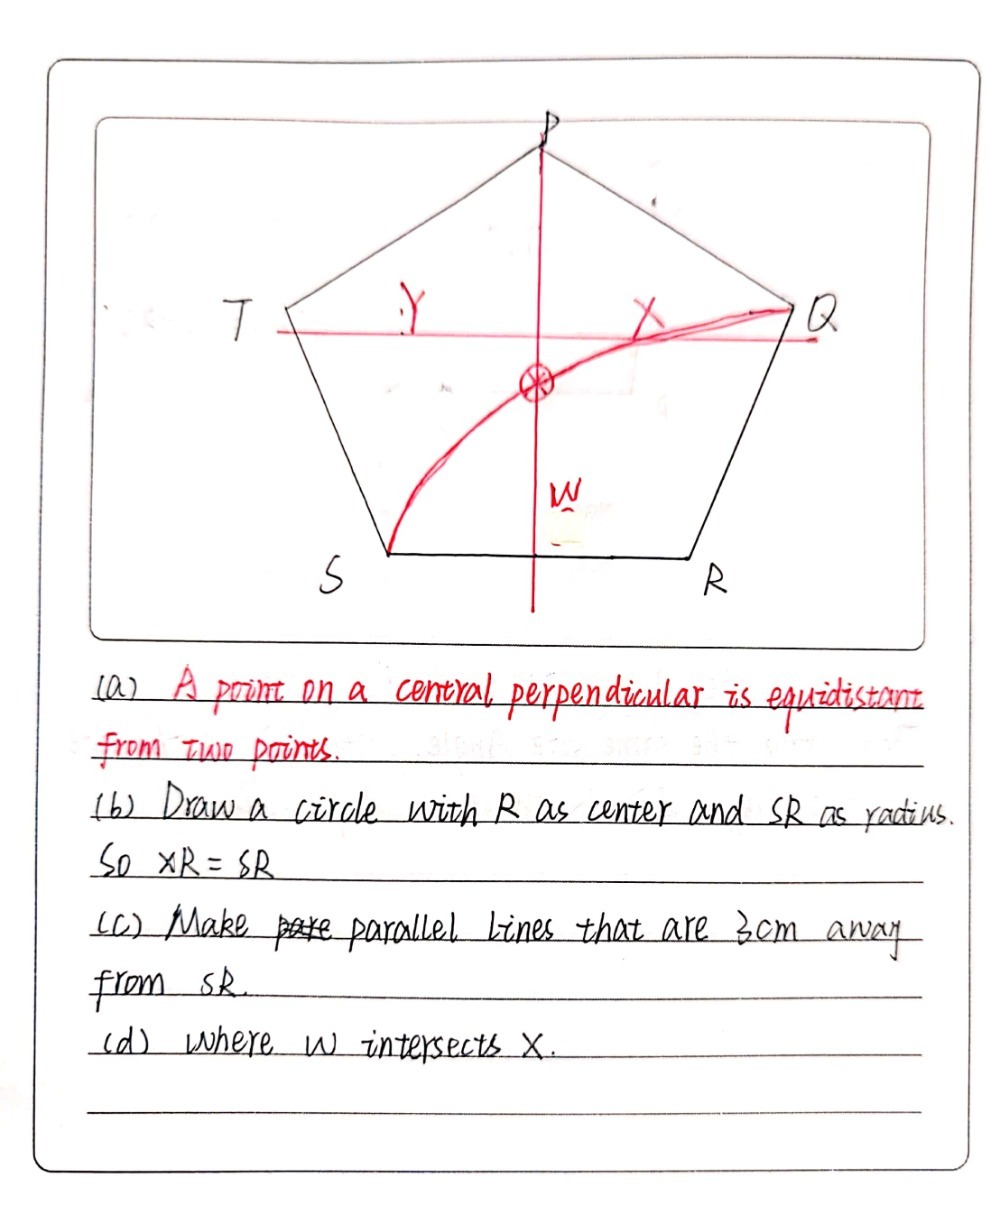 P
T
Y
X
Q
W
S
R
(a) A point on a central perpendicular is equidistant
from two points.
(b) Draw a circle with R as center and SR as radius.
So XR = SR
(c) Make pare parallel lines that are 3cm away
from SR.
(d) where W intersects X.